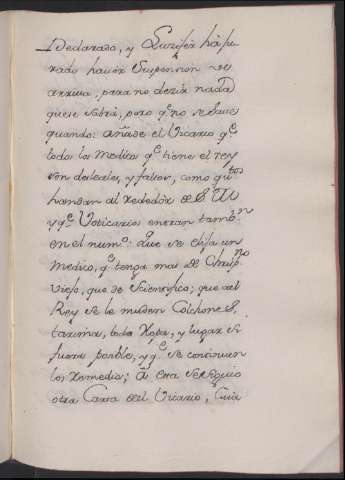 Declarado, y Luzifer ha ju
rado haver Suspension de
arriva, para no dezir nada
que se sabrá, pero q.e no se save
quando: añade el Vicario q.e
todos los Medicos q.e tiene el rey
son desleales, y falsos, como q.tos
handan al rededór de S. M
y q.e Voticarios entran tamb.n
en el num.o: Que se elija un
Medico, q.e tenga mas de
viejo, que de Scientifico; que al
Rey se le muden Colchones,
tarima, toda Ropa, y lugar si
fuera posible, y q.e se continuen
los Remedios; Á esta se siguio
otra Carta del Vicario, Cuia